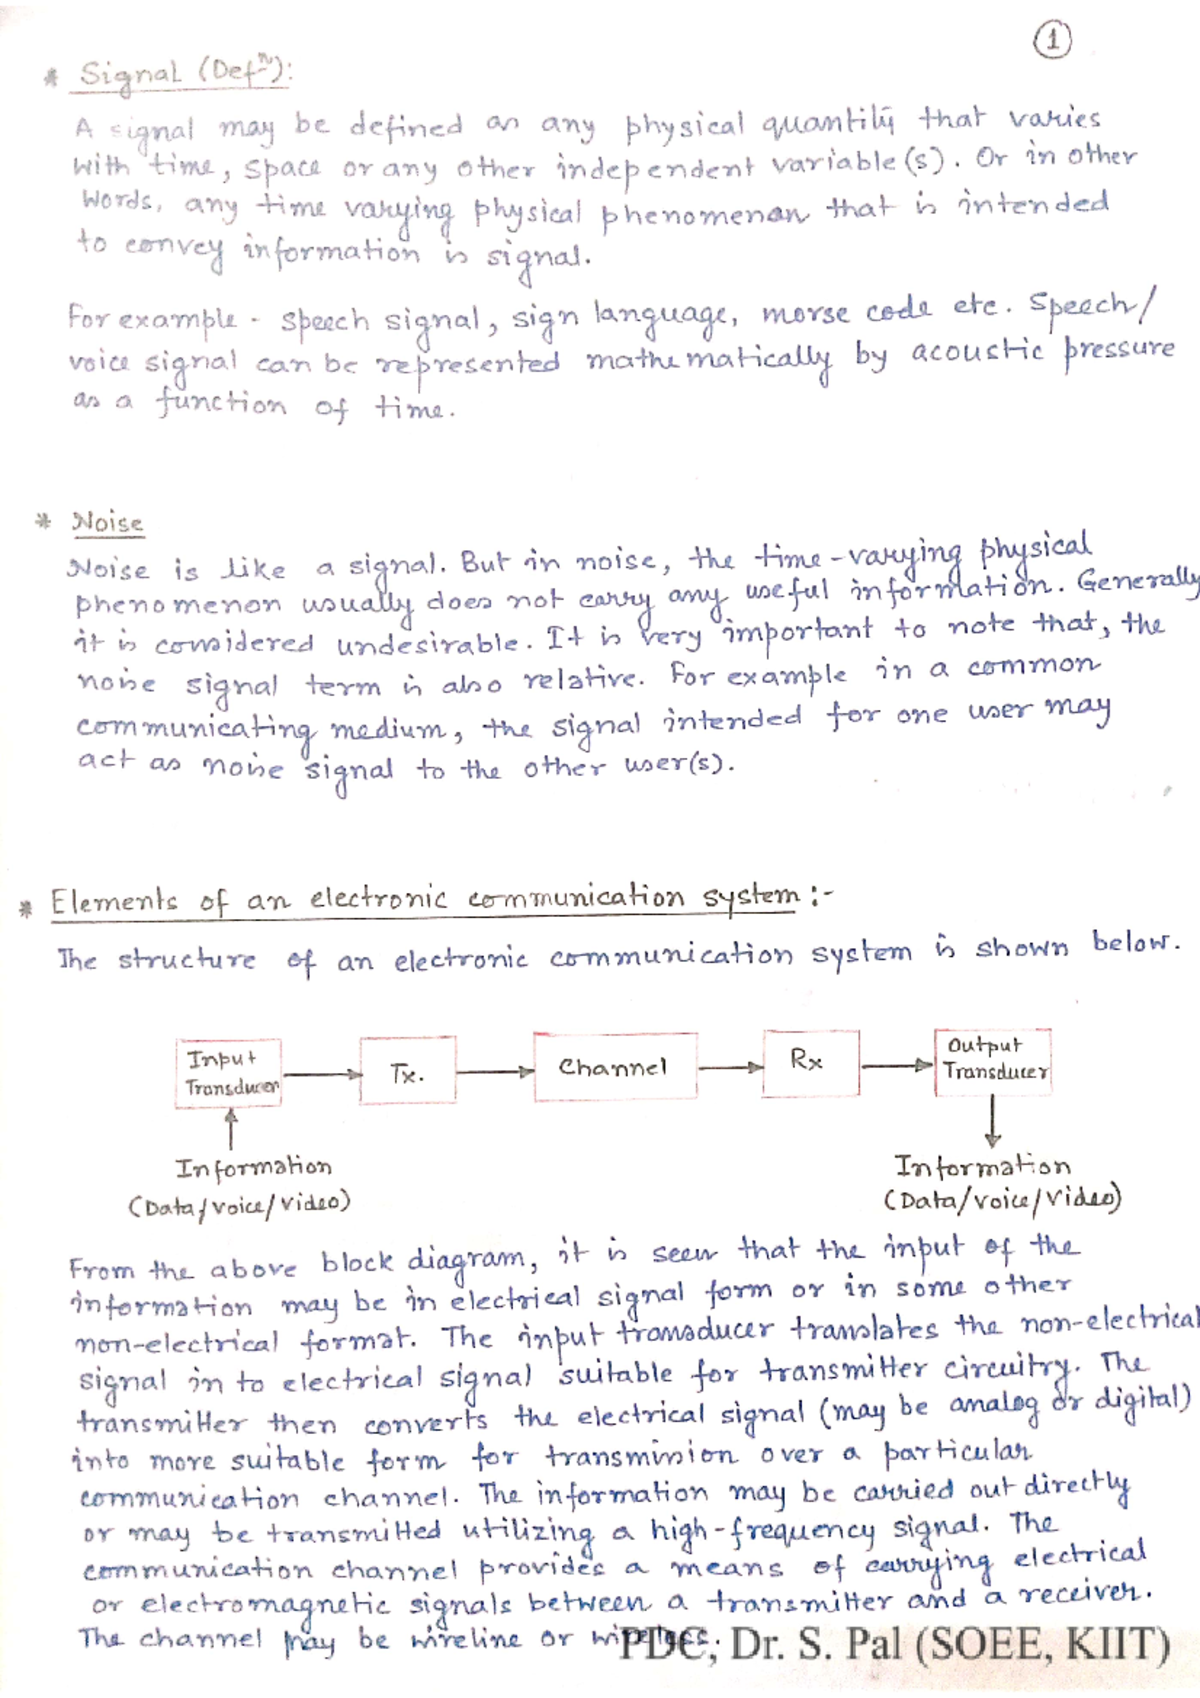 1
* Signal (Defⁿ):
A signal may be defined as any physical quantity that varies
with time, space or any other independent variable(s). Or in other
words, any time varying physical phenomenon that is intended
to convey information is signal.
For example - speech signal, sign language, morse code etc. Speech/
voice signal can be represented mathematically by acoustic pressure
as a function of time.
* Noise
Noise is like a signal. But in noise, the time-varying physical
phenomenon usually does not carry any useful information. Generally
it is considered undesirable. It is very important to note that, the
noise signal term is also relative. For example in a common
communicating medium, the signal intended for one user may
act as noise signal to the other user(s).
* Elements of an electronic communication system :-
The structure of an electronic communication system is shown below.
Input
Transducer
Tx.
Channel
Rx
Output
Transducer
Information
(Data/voice/video)
Information
(Data/voice/video)
From the above block diagram, it is seen that the input of the
information may be in electrical signal form or in some other
non-electrical format. The input transducer translates the non-electrical
signal in to electrical signal suitable for transmitter circuitry. The
transmitter then converts the electrical signal (may be analog or digital)
into more suitable form for transmission over a particular
communication channel. The information may be carried out directly
or may be transmitted utilizing a high-frequency signal. The
communication channel provides a means of carrying electrical
or electromagnetic signals between a transmitter and a receiver.
The channel may be wireline or wireless.
PDC, Dr. S. Pal (SOEE, KIIT)